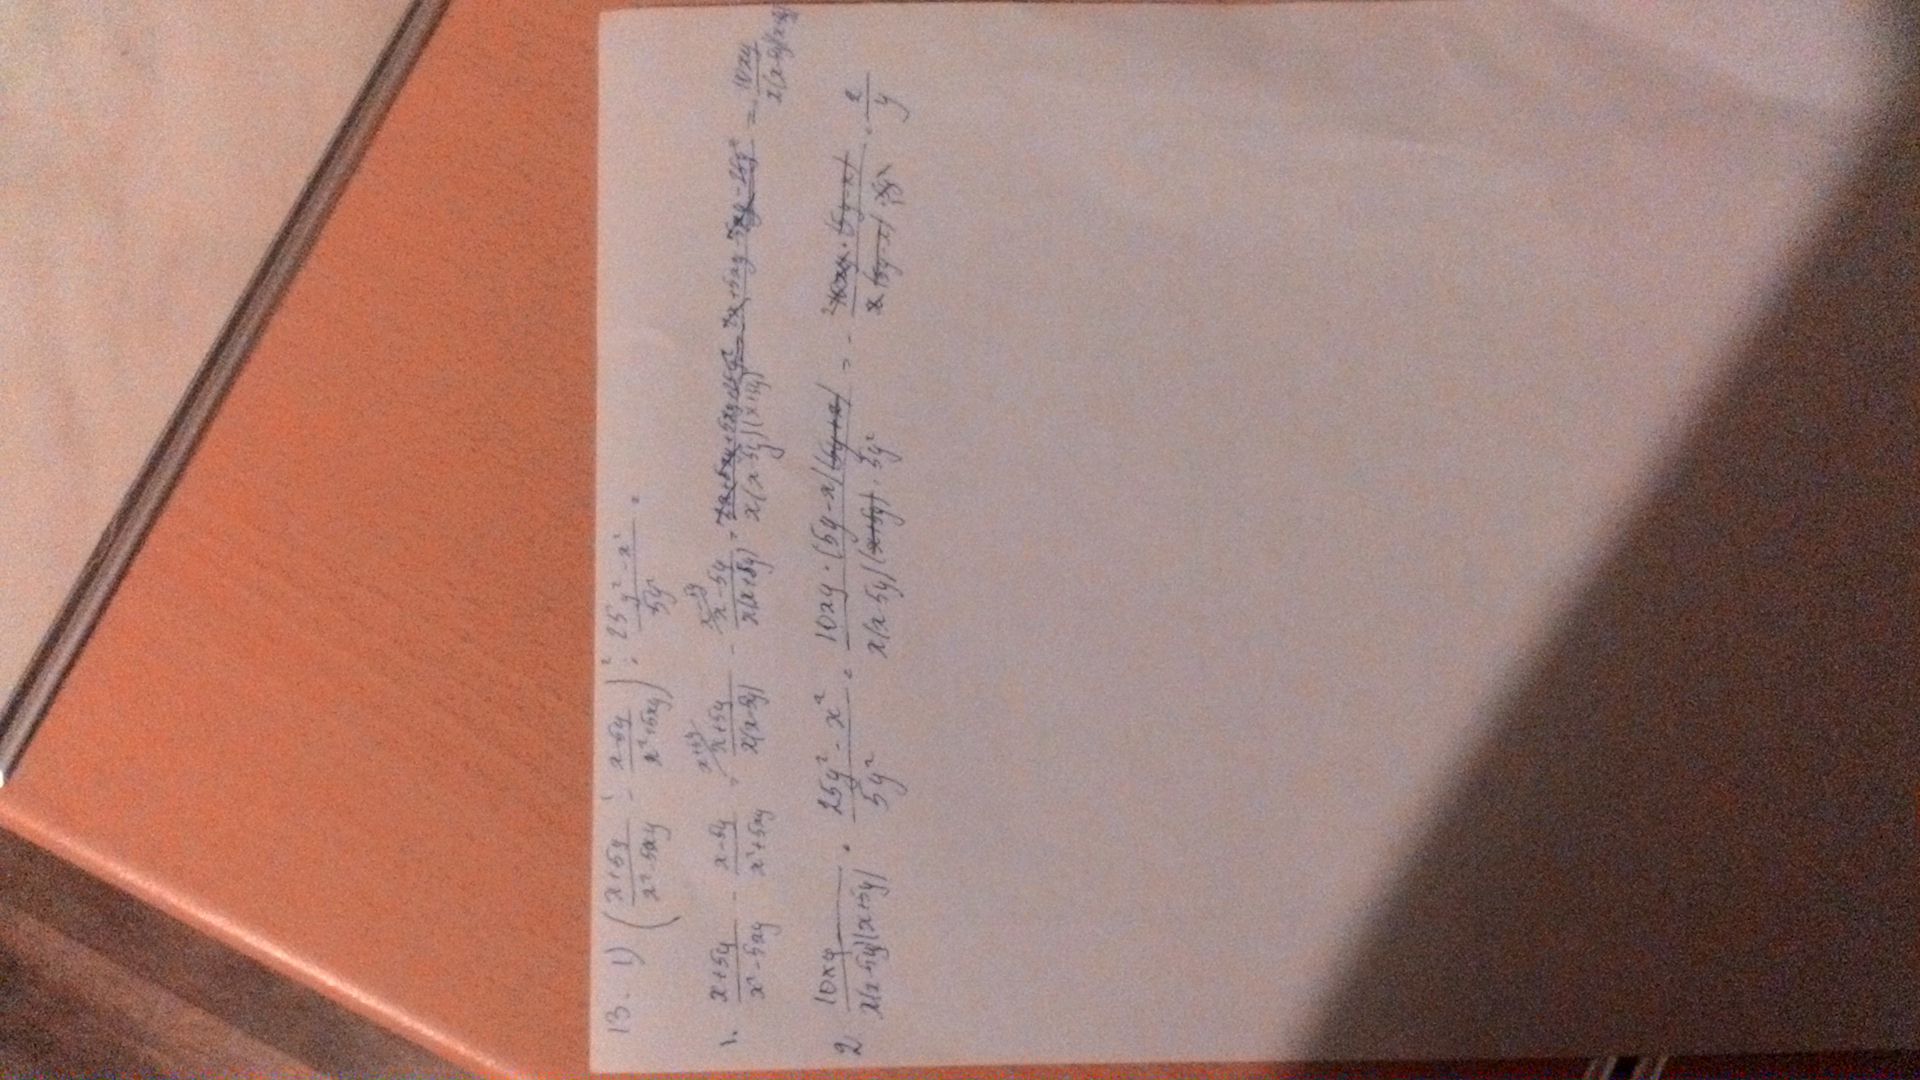 13. 1) ( (x+5y)/(x²-5xy) - (x-5y)/(x²+5xy) ) · (25y²-x²)/(5y²) =
1. (x+5y)/(x²-5xy) - (x-5y)/(x²+5xy) = (x+5y)/(x(x-5y)) - (x-5y)/(x(x+5y)) = /(x(x-5y)(x+5y)) = 10xy/
2 10xy/(x(x-5y)(x+5y)) · (25y²-x²)/(5y²) = (10xy·(5y-x)(5y+x))/(x(x-5y)(x+5y)·5y²) = - (10xy·(5y-x))/(x(5y-x)·5y²) = 2/y